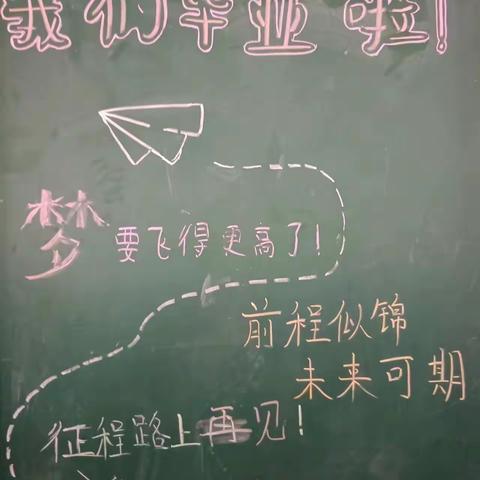 我们毕业啦!
梦
要飞得更高了!
前程似锦
未来可期
征程路上再见!